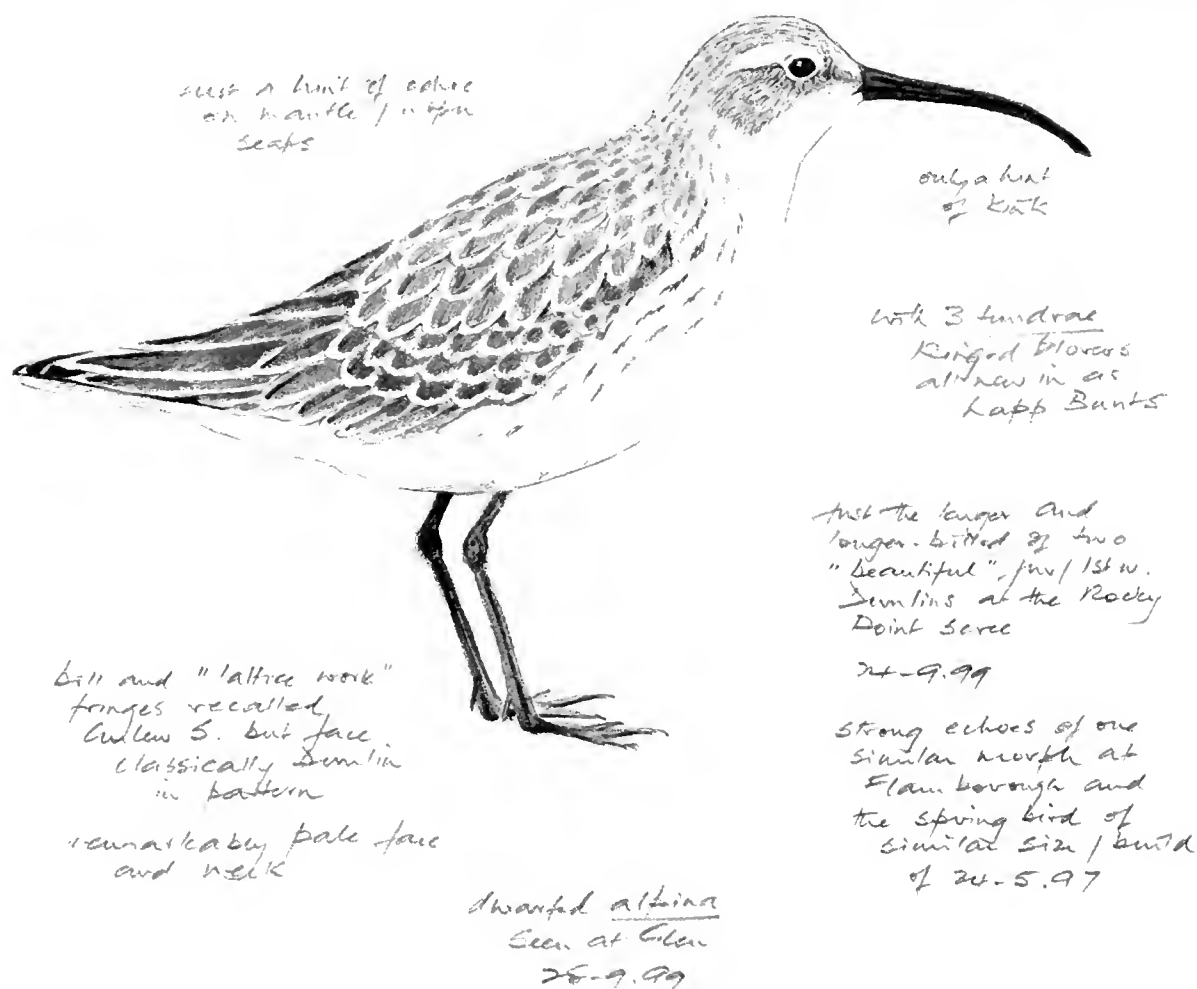 just a hint of ochre
on mantle / upper
scaps
only a hint
of kink
with 3 tundrae
Ringed Plovers
all new in as
Lapp Bunts
Just the larger and
longer-billed of two
"beautiful", juv/1st w.
Dunlins at the Rocky
Point scree
24-9.99
strong echoes of one
similar morph at
Flamborough and
the spring bird of
similar size / build
of 24-5.97
bill and "lattice work"
fringes recalled
Curlew S. but face
classically Dunlin
in pattern
remarkably pale face
and neck
dwarfed alpina
seen at Glen
-9.99